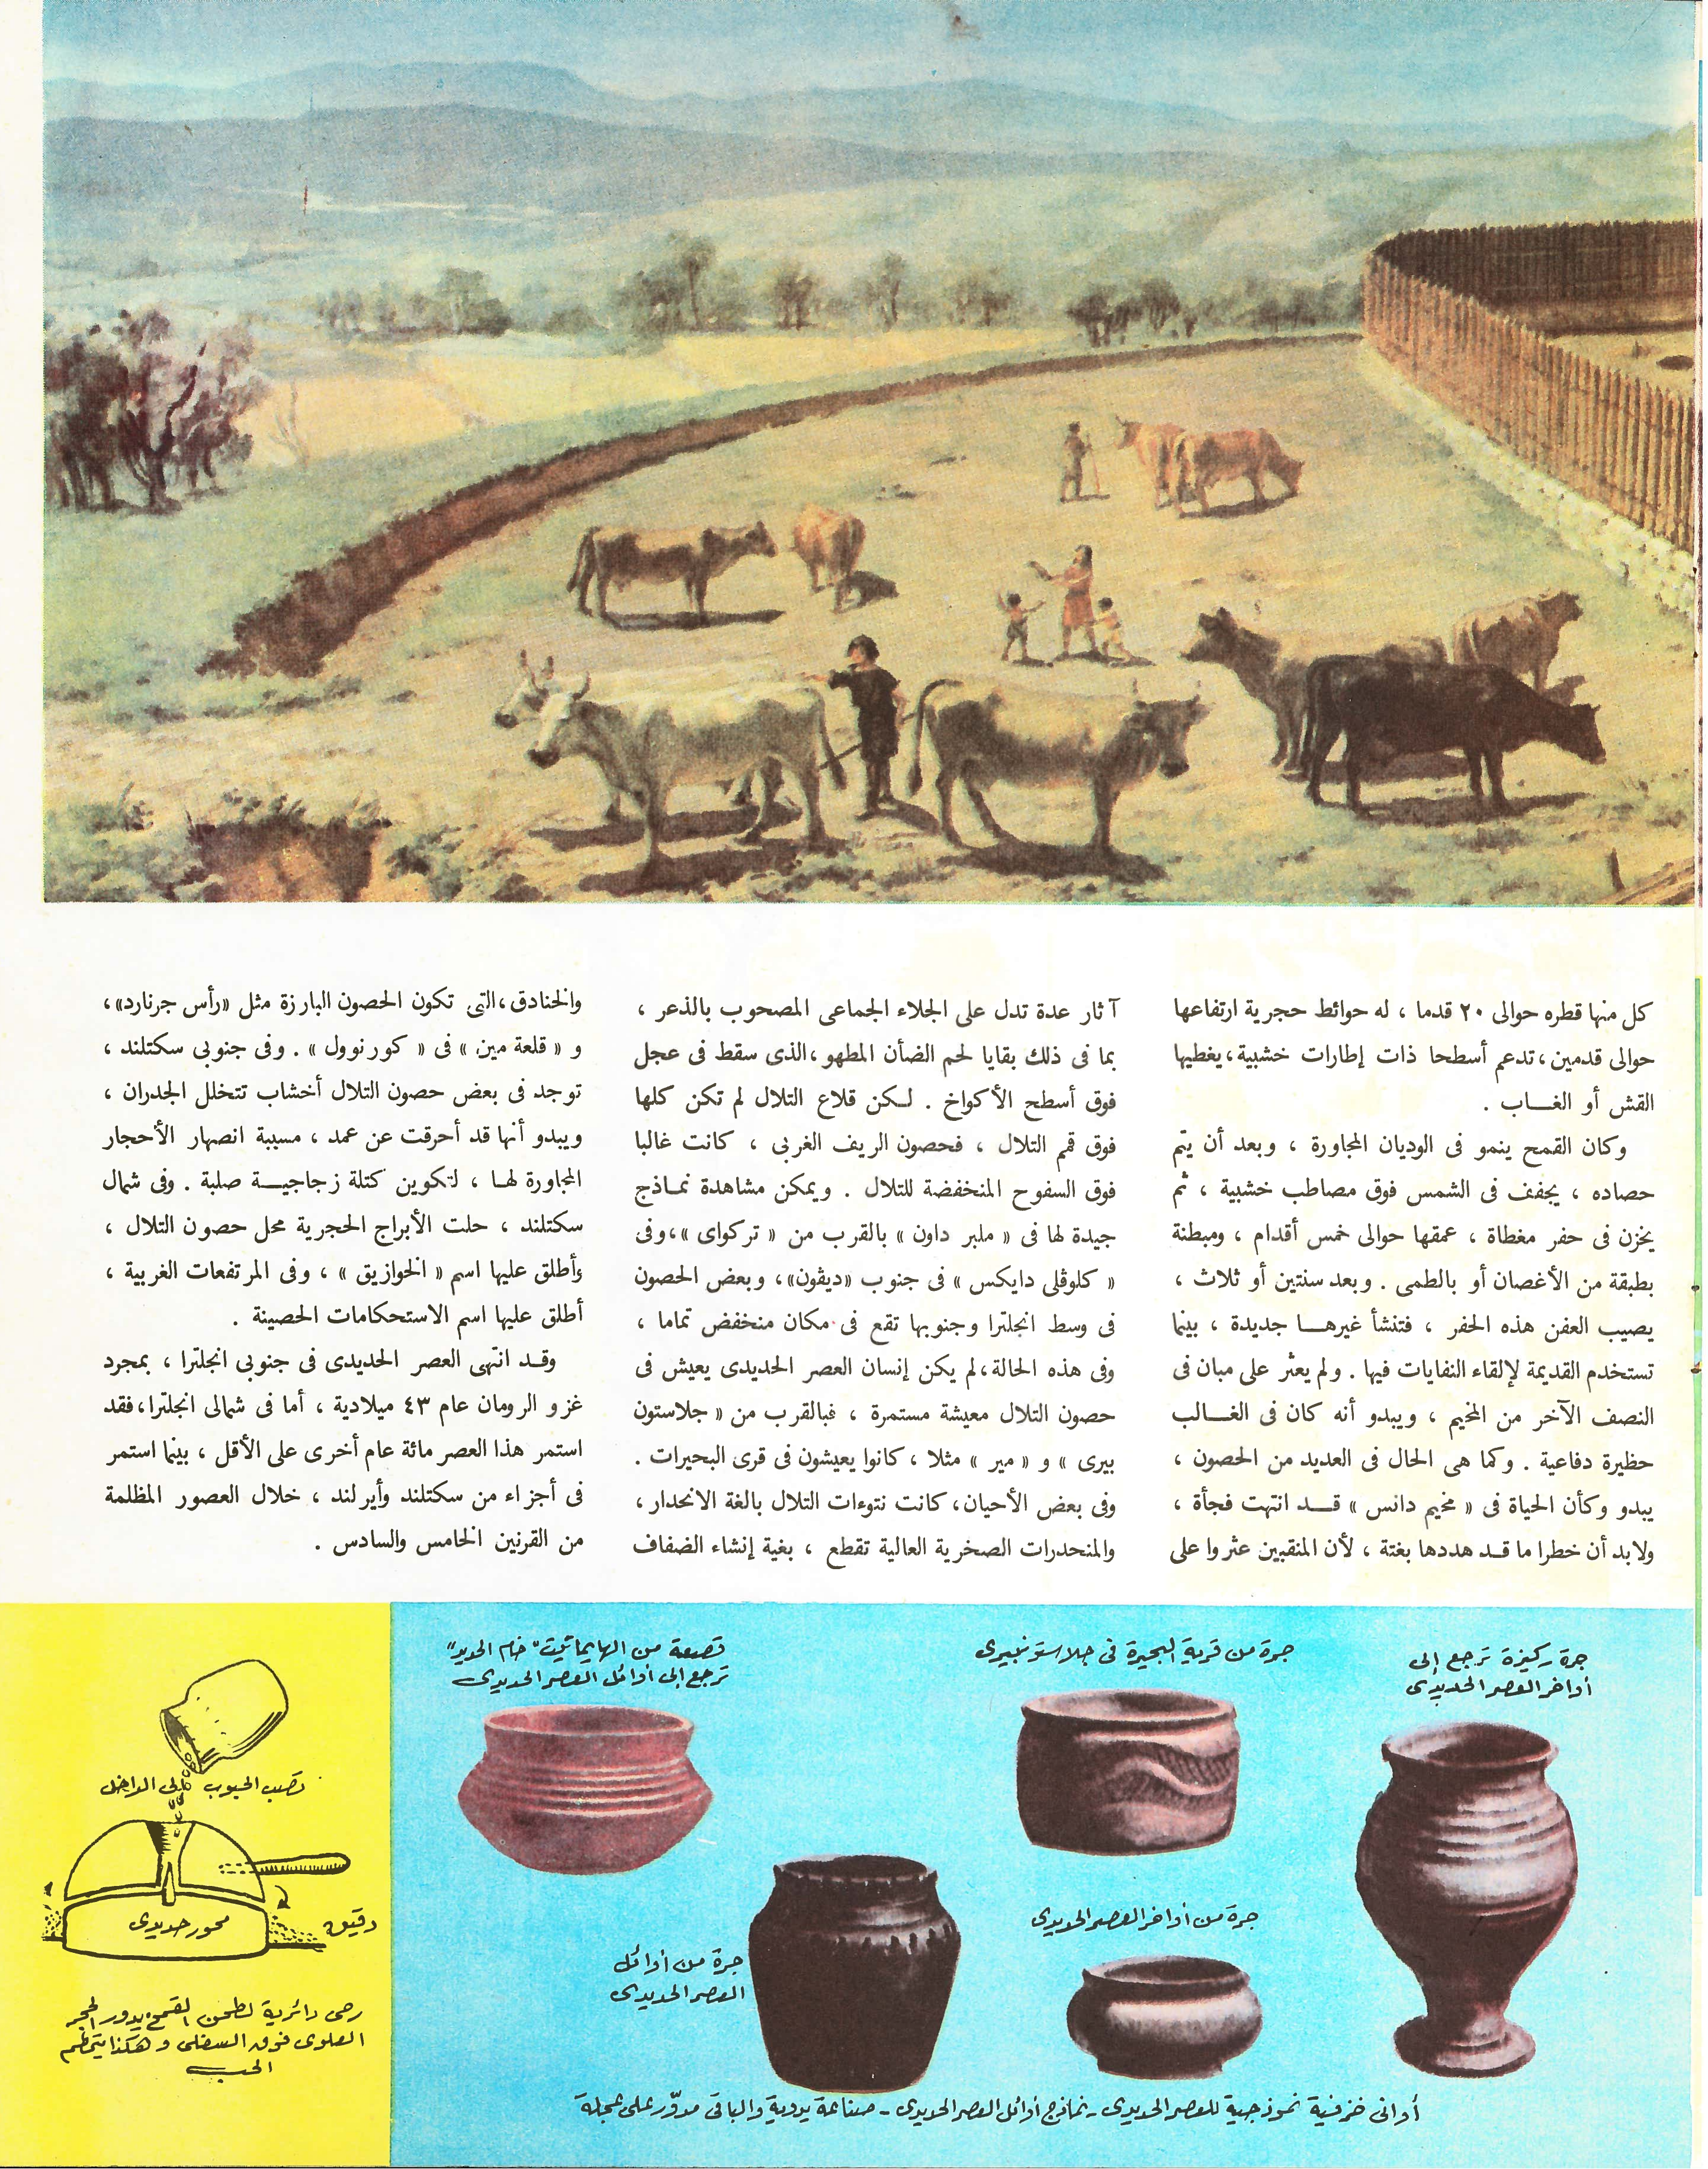 كل منها قطره حوالى ٢٠ قدما ، له حوائط حجرية ارتفاعها
حوالى قدمين ، تدعم أسطحا ذات إطارات خشبية ، يغطيها
القش أو الغاب .
وكان القمح ينمو فى الوديان المجاورة ، وبعد أن يتم
حصاده ، يجفف فى الشمس فوق مصاطب خشبية ، ثم
يخزن فى حفر مغطاة ، عمقها حوالى خمس أقدام ، ومبطنة
بطبقة من الأغصان أو بالطمى . وبعد سنتين أو ثلاث ،
يصيب العفن هذه الحفر ، فتنشأ غيرها جديدة ، بينما
تستخدم القديمة لإلقاء النفايات فيها . ولم يعثر على مبان فى
النصف الآخر من المخيم ، ويبدو أنه كان فى الغالب
حظيرة دفاعية . وكما هى الحال فى العديد من الحصون ،
يبدو وكأن الحياة فى « مخيم دانس » قد انتهت فجأة ،
ولابد أن خطرا ما قد هددها بغتة ، لأن المنقبين عثروا على
آثار عدة تدل على الجلاء الجماعى المصحوب بالذعر ،
بما فى ذلك بقايا لحم الضأن المطهو ، الذى سقط فى عجل
فوق أسطح الأكواخ . لكن قلاع التلال لم تكن كلها
فوق قمم التلال ، فحصون الريف الغربى ، كانت غالبا
فوق السفوح المنخفضة للتلال . ويمكن مشاهدة نماذج
جيدة لها فى « ملبر داون » بالقرب من « تركواى » ، وفى
« كلوڤلى دايكس » فى جنوب « ديڤون » ، وبعض الحصون
فى وسط انجلترا وجنوبها تقع فى مكان منخفض تماما ،
وفى هذه الحالة ، لم يكن إنسان العصر الحديدى يعيش فى
حصون التلال معيشة مستمرة ، فبالقرب من « جلاستون
بيرى » و « مير » مثلا ، كانوا يعيشون فى قرى البحيرات .
وفى بعض الأحيان ، كانت نتوءات التلال بالغة الانحدار ،
والمنحدرات الصخرية العالية تقطع ، بغية إنشاء الضفاف
والخنادق ، التى تكون الحصون البارزة مثل « رأس جرنارد » ،
و « قلعة مين » فى « كورنوول » . وفى جنوبى سكتلند ،
توجد فى بعض حصون التلال أخشاب تتخلل الجدران ،
ويبدو أنها قد أحرقت عن عمد ، مسببة انصهار الأحجار
المجاورة لها ، لتكوين كتلة زجاجية صلبة . وفى شمال
سكتلند ، حلت الأبراج الحجرية محل حصون التلال ،
وأطلق عليها اسم « الخوازيق » ، وفى المرتفعات الغربية ،
أطلق عليها اسم الاستحكامات الحصينة .
وقد انتهى العصر الحديدى فى جنوبى انجلترا ، بمجرد
غزو الرومان عام ٤٣ ميلادية ، أما فى شمالى انجلترا ، فقد
استمر هذا العصر مائة عام أخرى على الأقل ، بينما استمر
فى أجزاء من سكتلند وأيرلند ، خلال العصور المظلمة
من القرنين الخامس والسادس .
جرة ركيزة ترجع إلى
أواخر العصر الحديدى
جرة من قرية البحيرة فى جلاستونبيرى
قصعة من الهايماتيت "خام الحديد"
ترجع إلى أوائل العصر الحديدى
جرة من أواخر العصر الحديدى
جرة من أوائل
العصر الحديدى
أوانى خزفية نموذجية للعصر الحديدى - نماذج أوائل العصر الحديدى - صناعة يدوية والباقى مدوّر على عجلة
تصب الحبوب إلى الداخل
محور حديدى
دقيق
رحى دائرية لطحن القمح يدور الحجر
العلوى فوق السفلى وهكذا يتحطم
الحب